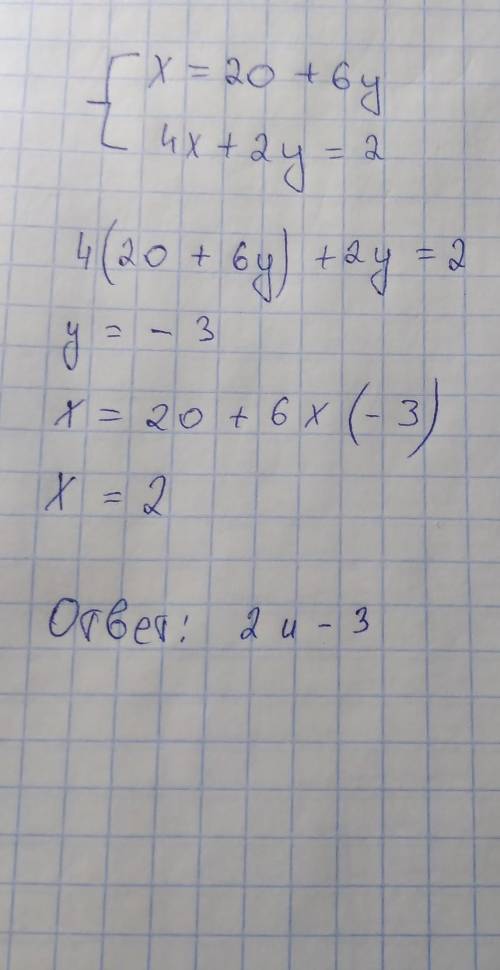 x = 20 + 6y
4x + 2y = 2
4(20 + 6y) + 2y = 2
y = - 3
x = 20 + 6 x (- 3)
x = 2
Ответ: 2 и - 3